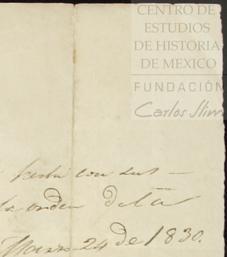 CENTRO DE
ESTUDIOS
DE HISTORIA
DE MEXICO
FUNDACIÓN
Carlos Slim
con sus
la orden de
Marzo 24 de 1830.